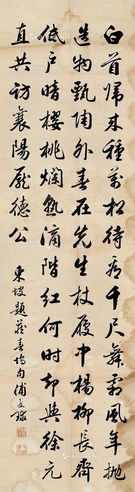 白首歸來種萬松待看千尺舞霜風年拋
造物甄陶外春在先生杖屨中楊柳長齊
低戶暗櫻桃爛熟滴階紅何時却與徐元
直共訪襄陽龐德公
東坡題藏春塢句